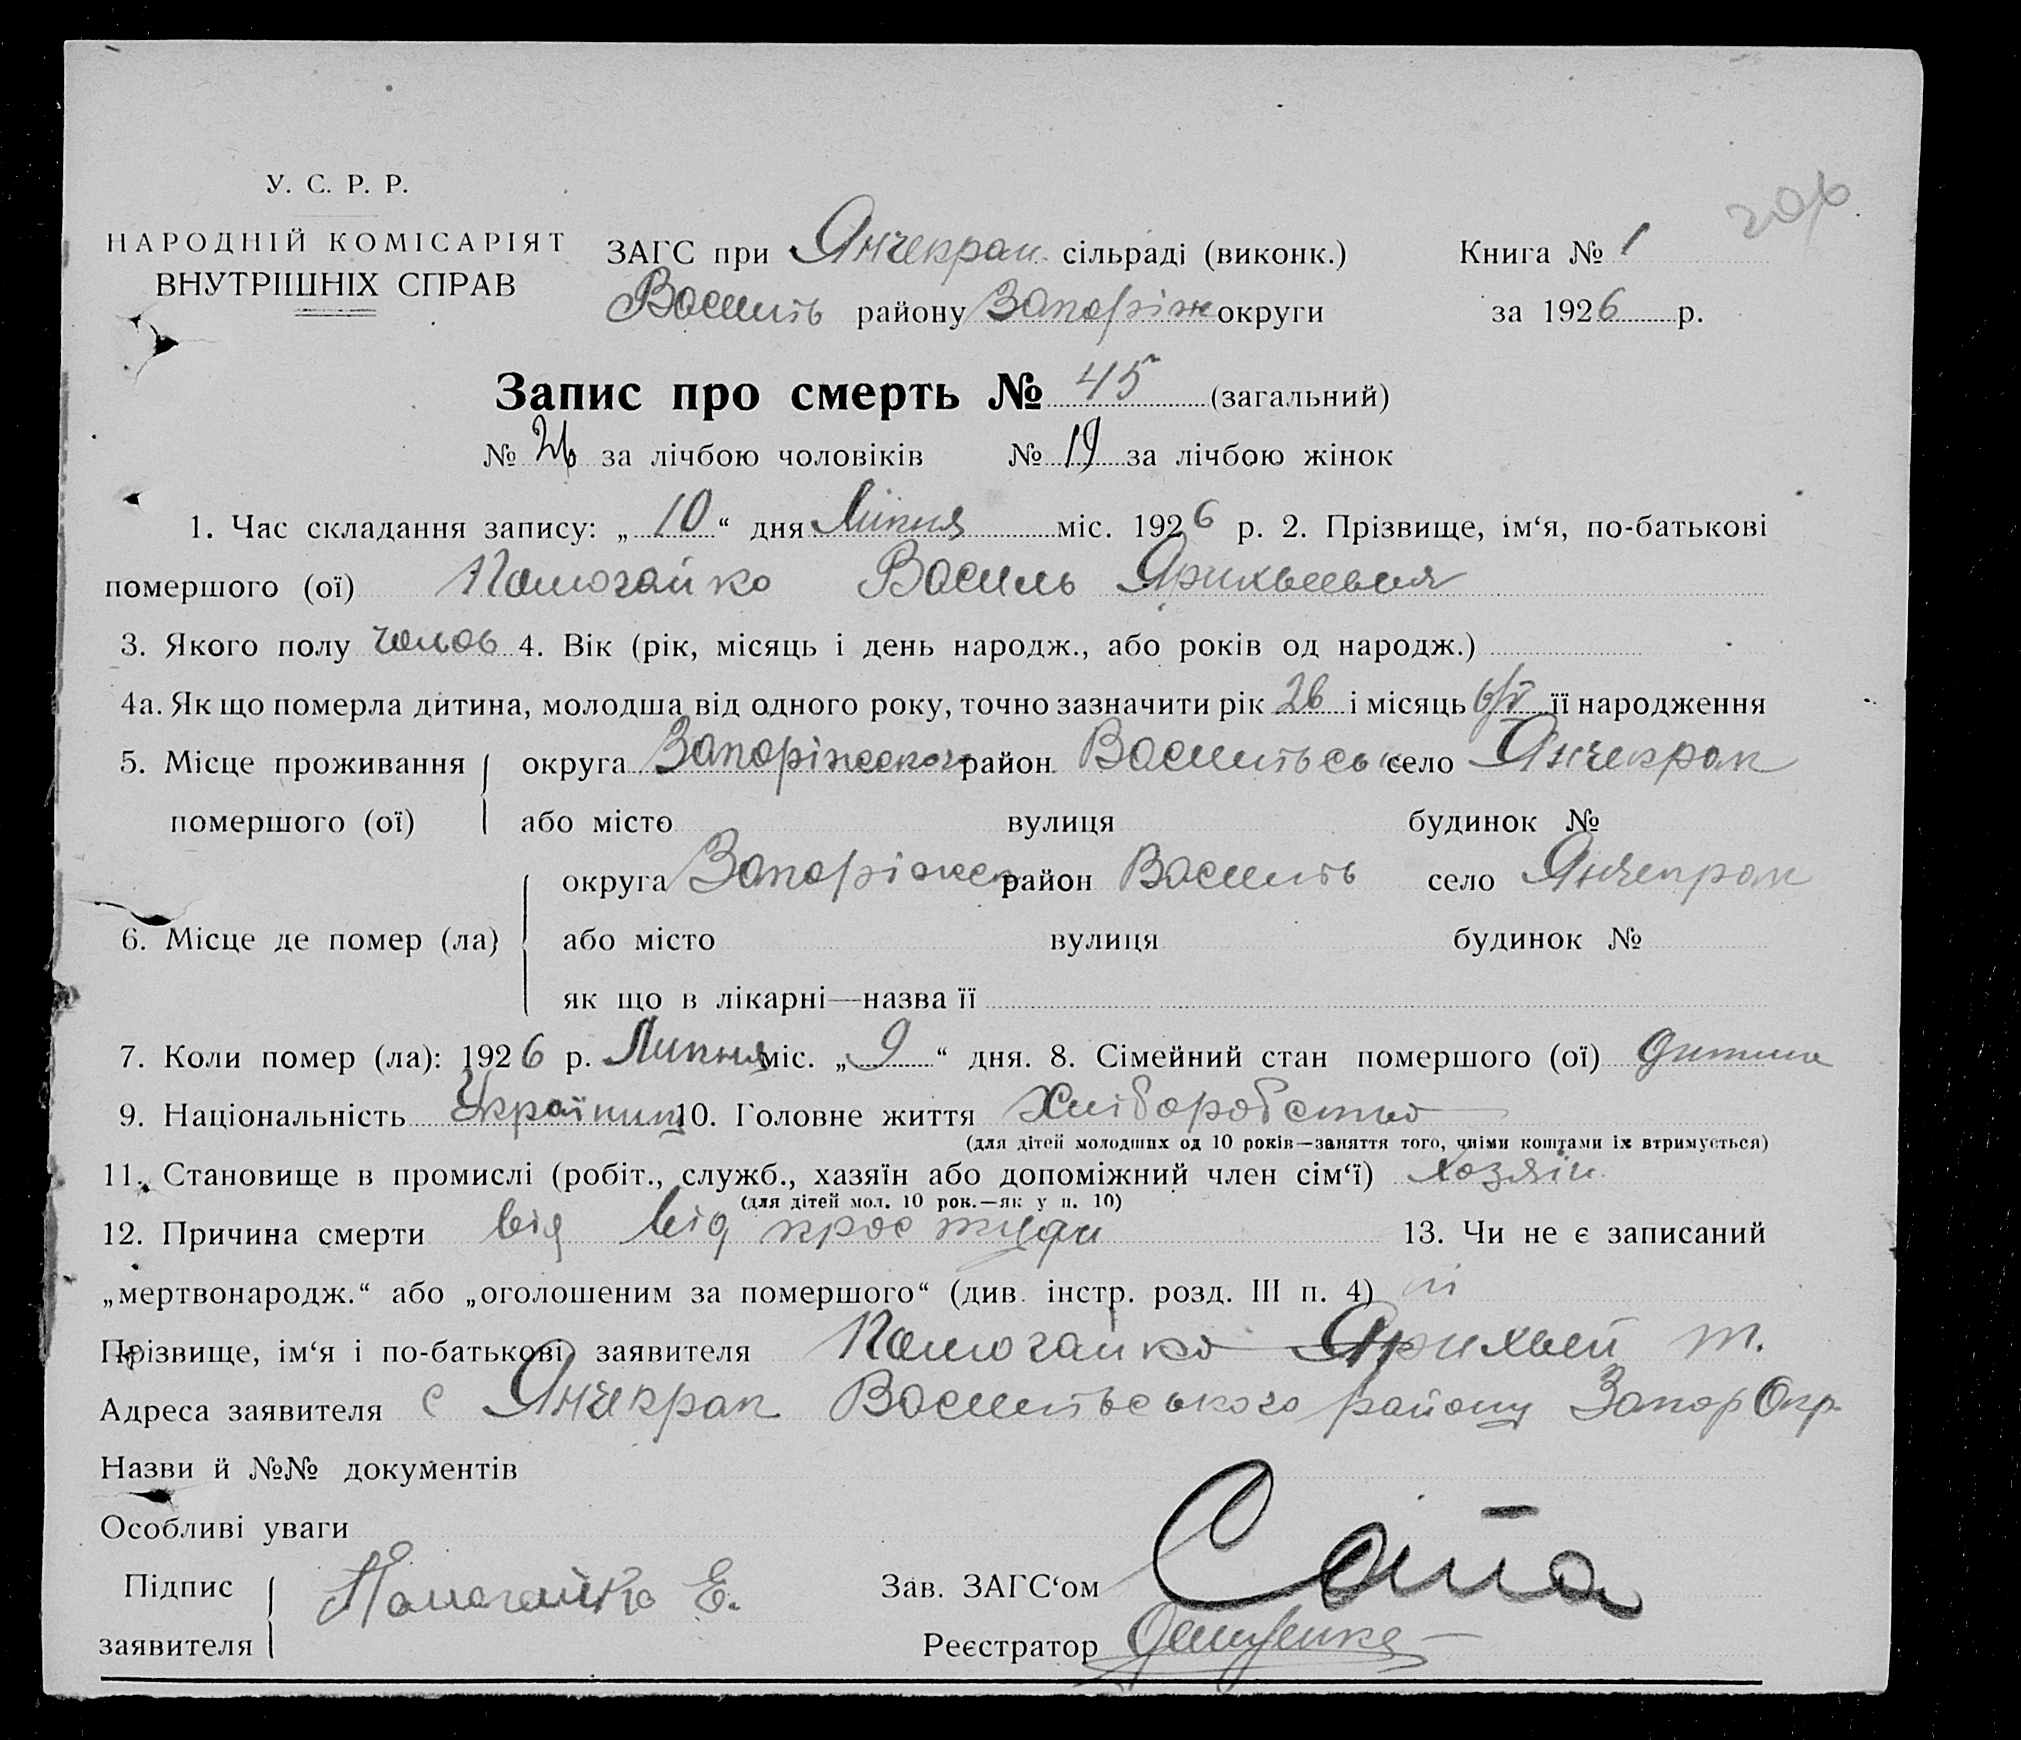 У. С. Р. Р.
НАРОДНІЙ КОМІСАРІЯТ
ВНУТРІШНІХ СПРАВ
ЗАГС при Янчекрак сільраді (виконк.) Книга № 1
Василів району Запоріж округи за 1926 р.
Запис про смерть № 45 (загальний)
№ 26 за лічбою чоловіків № 19 за лічбою жінок
1. Час складання запису: „10“ дня Липня міс. 1926 р. 2. Прізвище, ім‘я, по-батькові
помершого (ої) Помогайко Василь
3. Якого полу чолов 4. Вік (рік, місяць і день народж., або років од народж.)
4а. Як що померла дитина, молодша від одного року, точно зазначити рік 26 і місяць її народження
5. Місце проживання округа Запоріжського район село Янчекрак
помершого (ої) або місто вулиця будинок №
округа район село Янчекрак
6. Місце де помер (ла) або місто вулиця будинок №
як що в лікарні—назва її
7. Коли помер (ла): 1926 р. Липня міс. „9“ дня. 8. Сімейний стан помершого (ої) дитина
9. Національність Українец 10. Головне життя Хліборобство
(для дітей молодших од 10 років—заняття того, чиїми коштами їх втримується)
11. Становище в промислі (робіт., служб., хазяїн або допоміжний член сім‘ї) хозяін
(для дітей мол. 10 рок.—як у п. 10)
12. Причина смерти від від простуди 13. Чи не є записаний
„мертвонародж.“ або „оголошеним за помершого“ (див. інстр. розд. III п. 4) ні
Прізвище, ім‘я і по-батькові заявителя Помогайко Т.
Адреса заявителя с Янчекрак району Запор Окр.
Назви й №№ документів
Особливі уваги
Підпис Помогайко Е. Зав. ЗАГС‘ом
заявителя Реєстратор